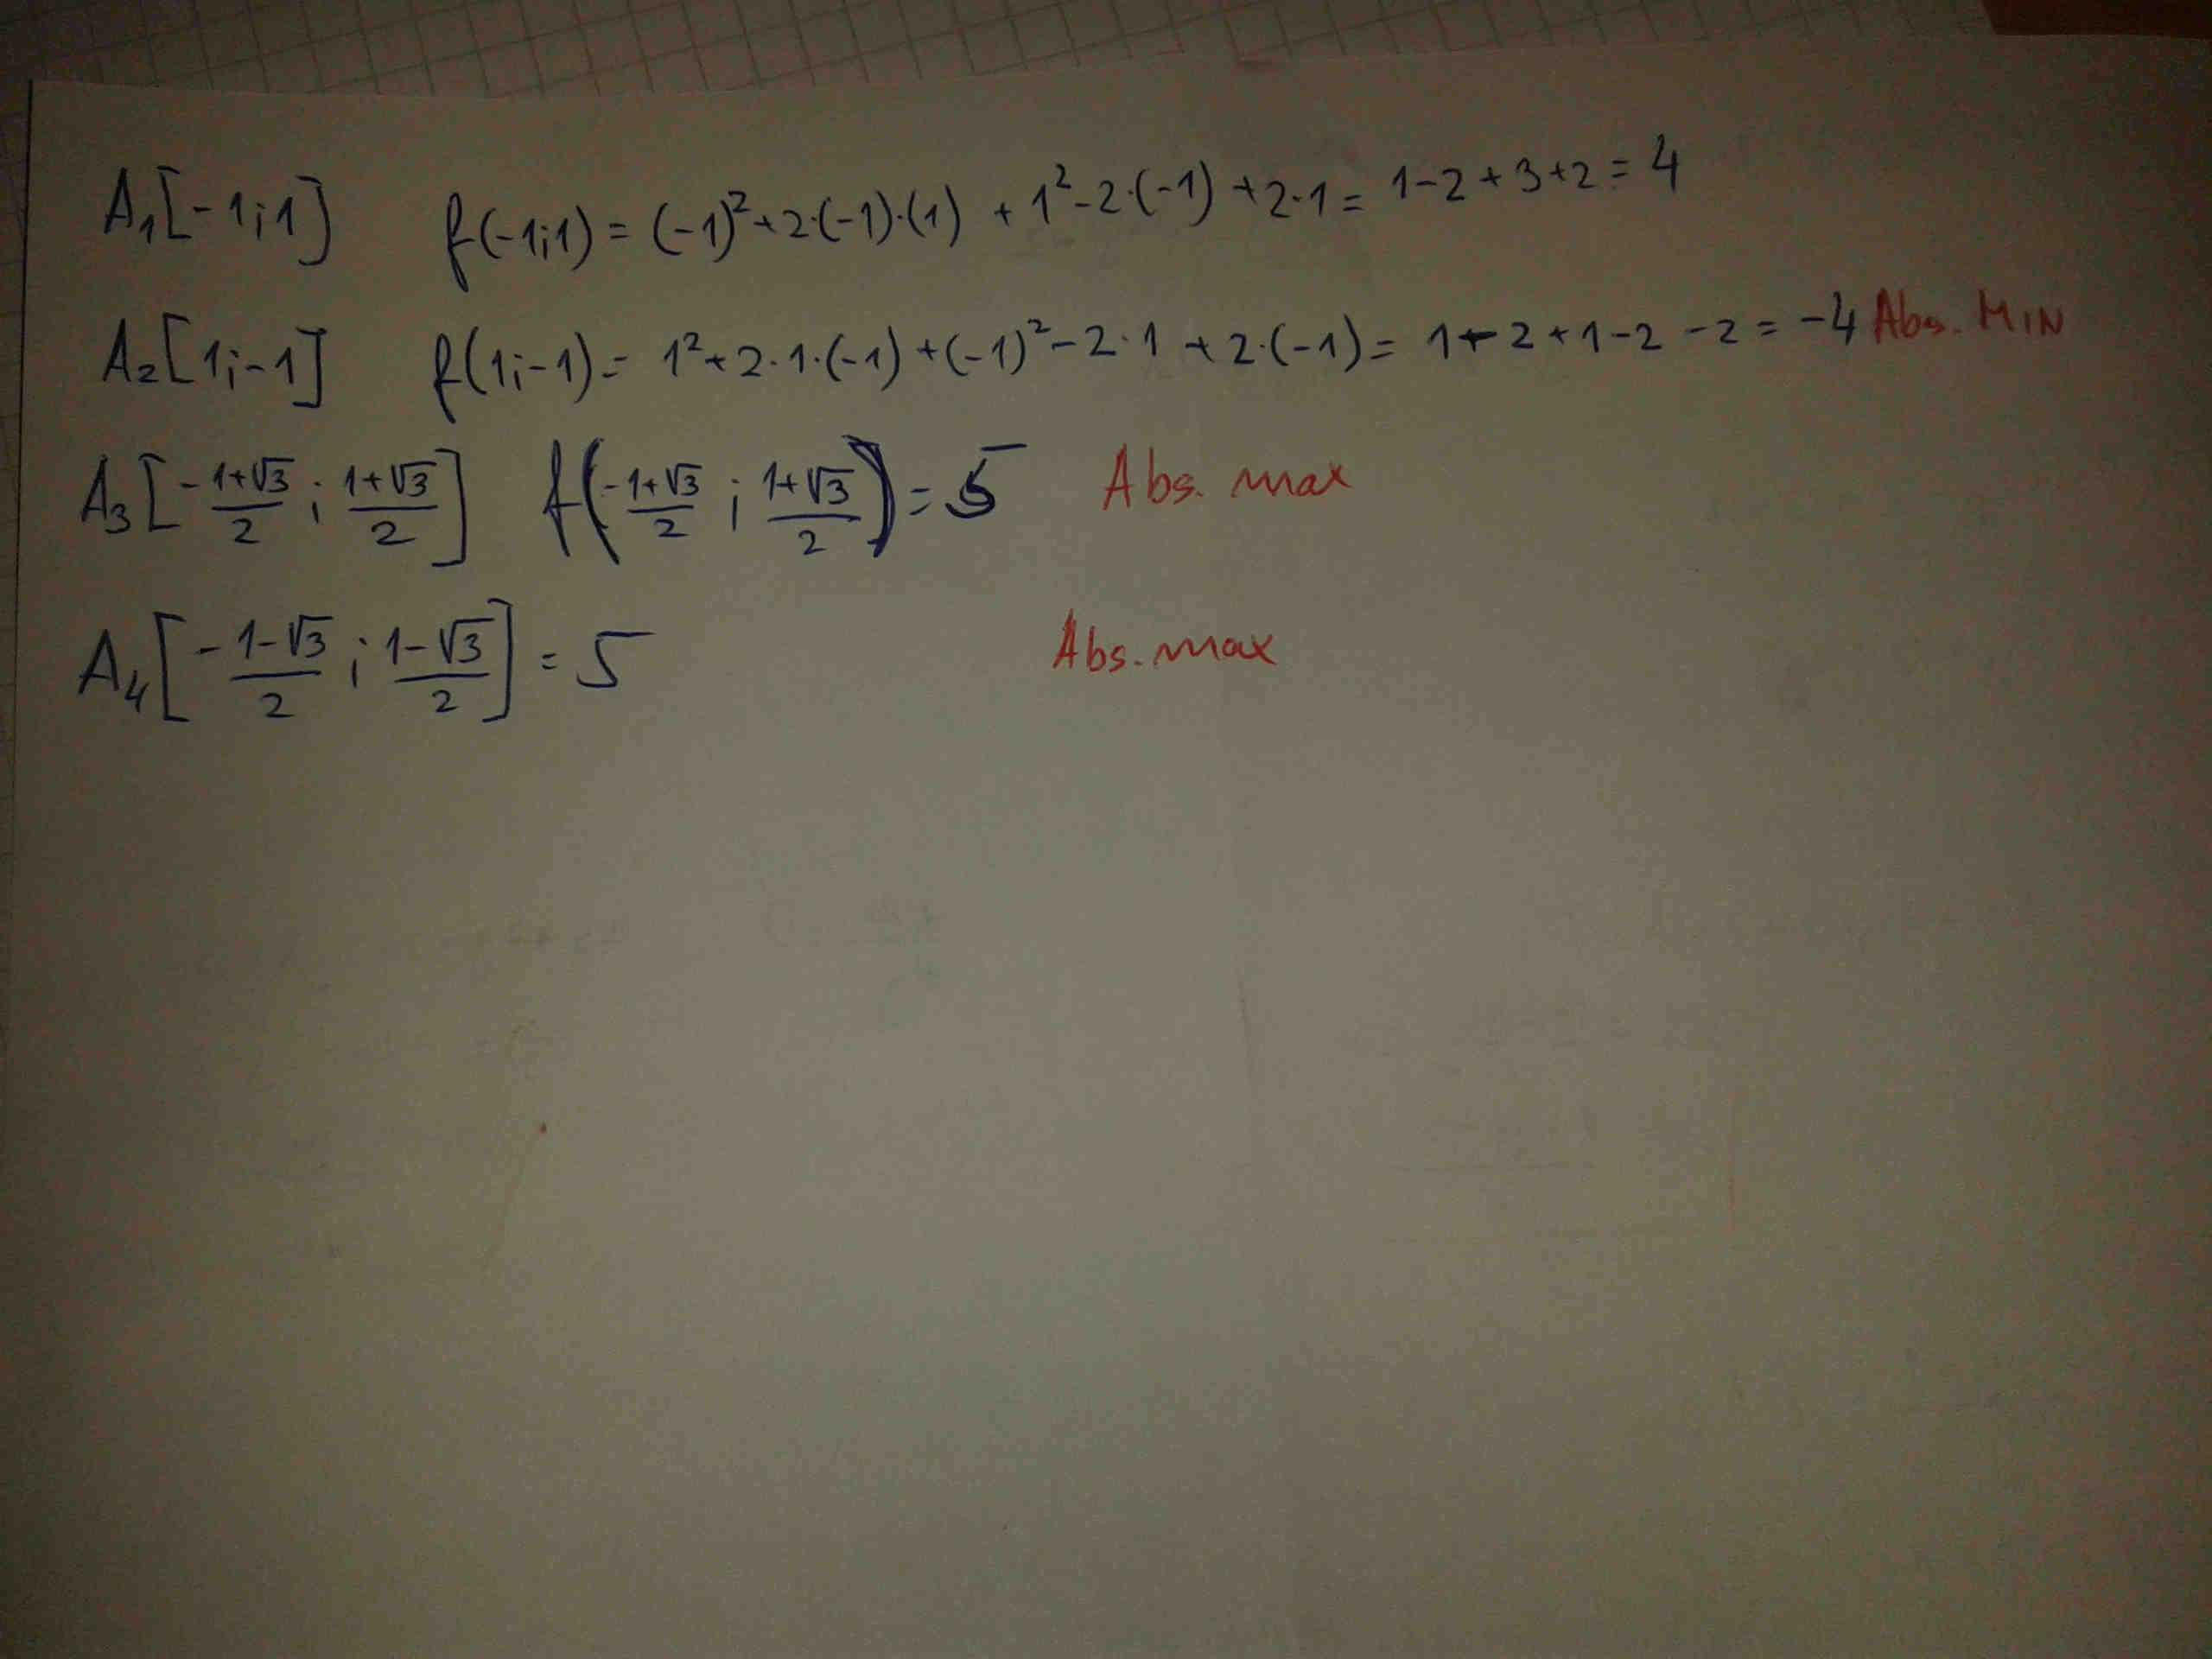 A₁[-1;1] f(-1;1) = (-1)²+2·(-1)·(1) + 1²-2·(-1) +2·1 = 1-2+3+2 = 4
A₂[1;-1] f(1;-1) = 1²+2·1·(-1)+(-1)²-2·1 +2·(-1) = 1-2+1-2-2 = -4 Abs. MIN
A₃[-\frac{1+√3}{2} ; \frac{1+√3}{2}] f(-\frac{1+√3}{2} ; \frac{1+√3}{2}) = 5 Abs. max
A₄[-\frac{1-√3}{2} ; \frac{1-√3}{2}] = 5 Abs. max